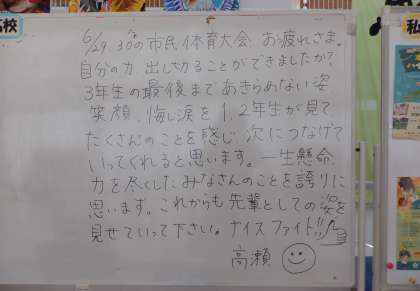 6/29.30の市民体育大会、お疲れさま。
自分の力、出し切ることができましたか?
3年生の最後まであきらめない姿
笑顔、悔し涙を1.2年生が見て
たくさんのことを感じ、次につなげて
いってくれると思います。一生懸命、
力を尽くしたみなさんのことを誇りに
思います。これからも先輩としての姿を
見せていって下さい。ナイスファイト!!
高瀬
校
私